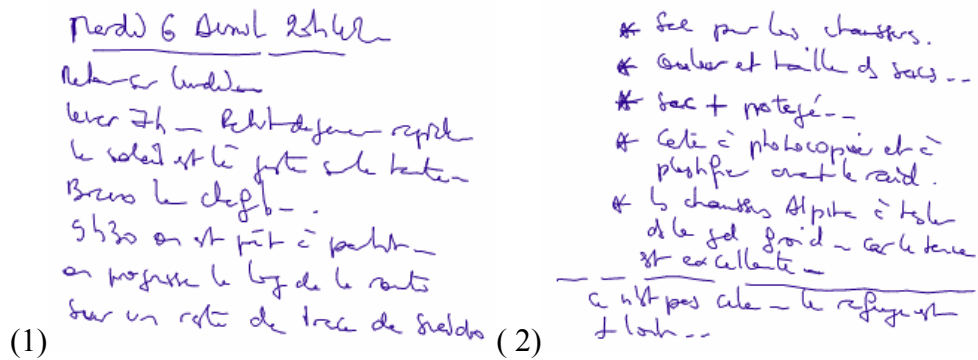 Mardi 6 Avril 23h42
Retour sur
lever 7h _ Petit dejeuner rapide
le soleil est là juste sur la tente _
Bravo le chef
9h30 on est prêt à partir _
on progresse le long de la route
sur un reste de trace de
(1)
* Sac pour les chaussures.
* Couleur et taille ds sacs --
* Sac + protégé --
* Carte à photocopier et à
plastifier avant le raid.
* ls chaussures Alpina à tester
ds le gel froid _ car le tenue
est excellente _
c n'est pas cela _ le refuge est
+ loin --
(2)